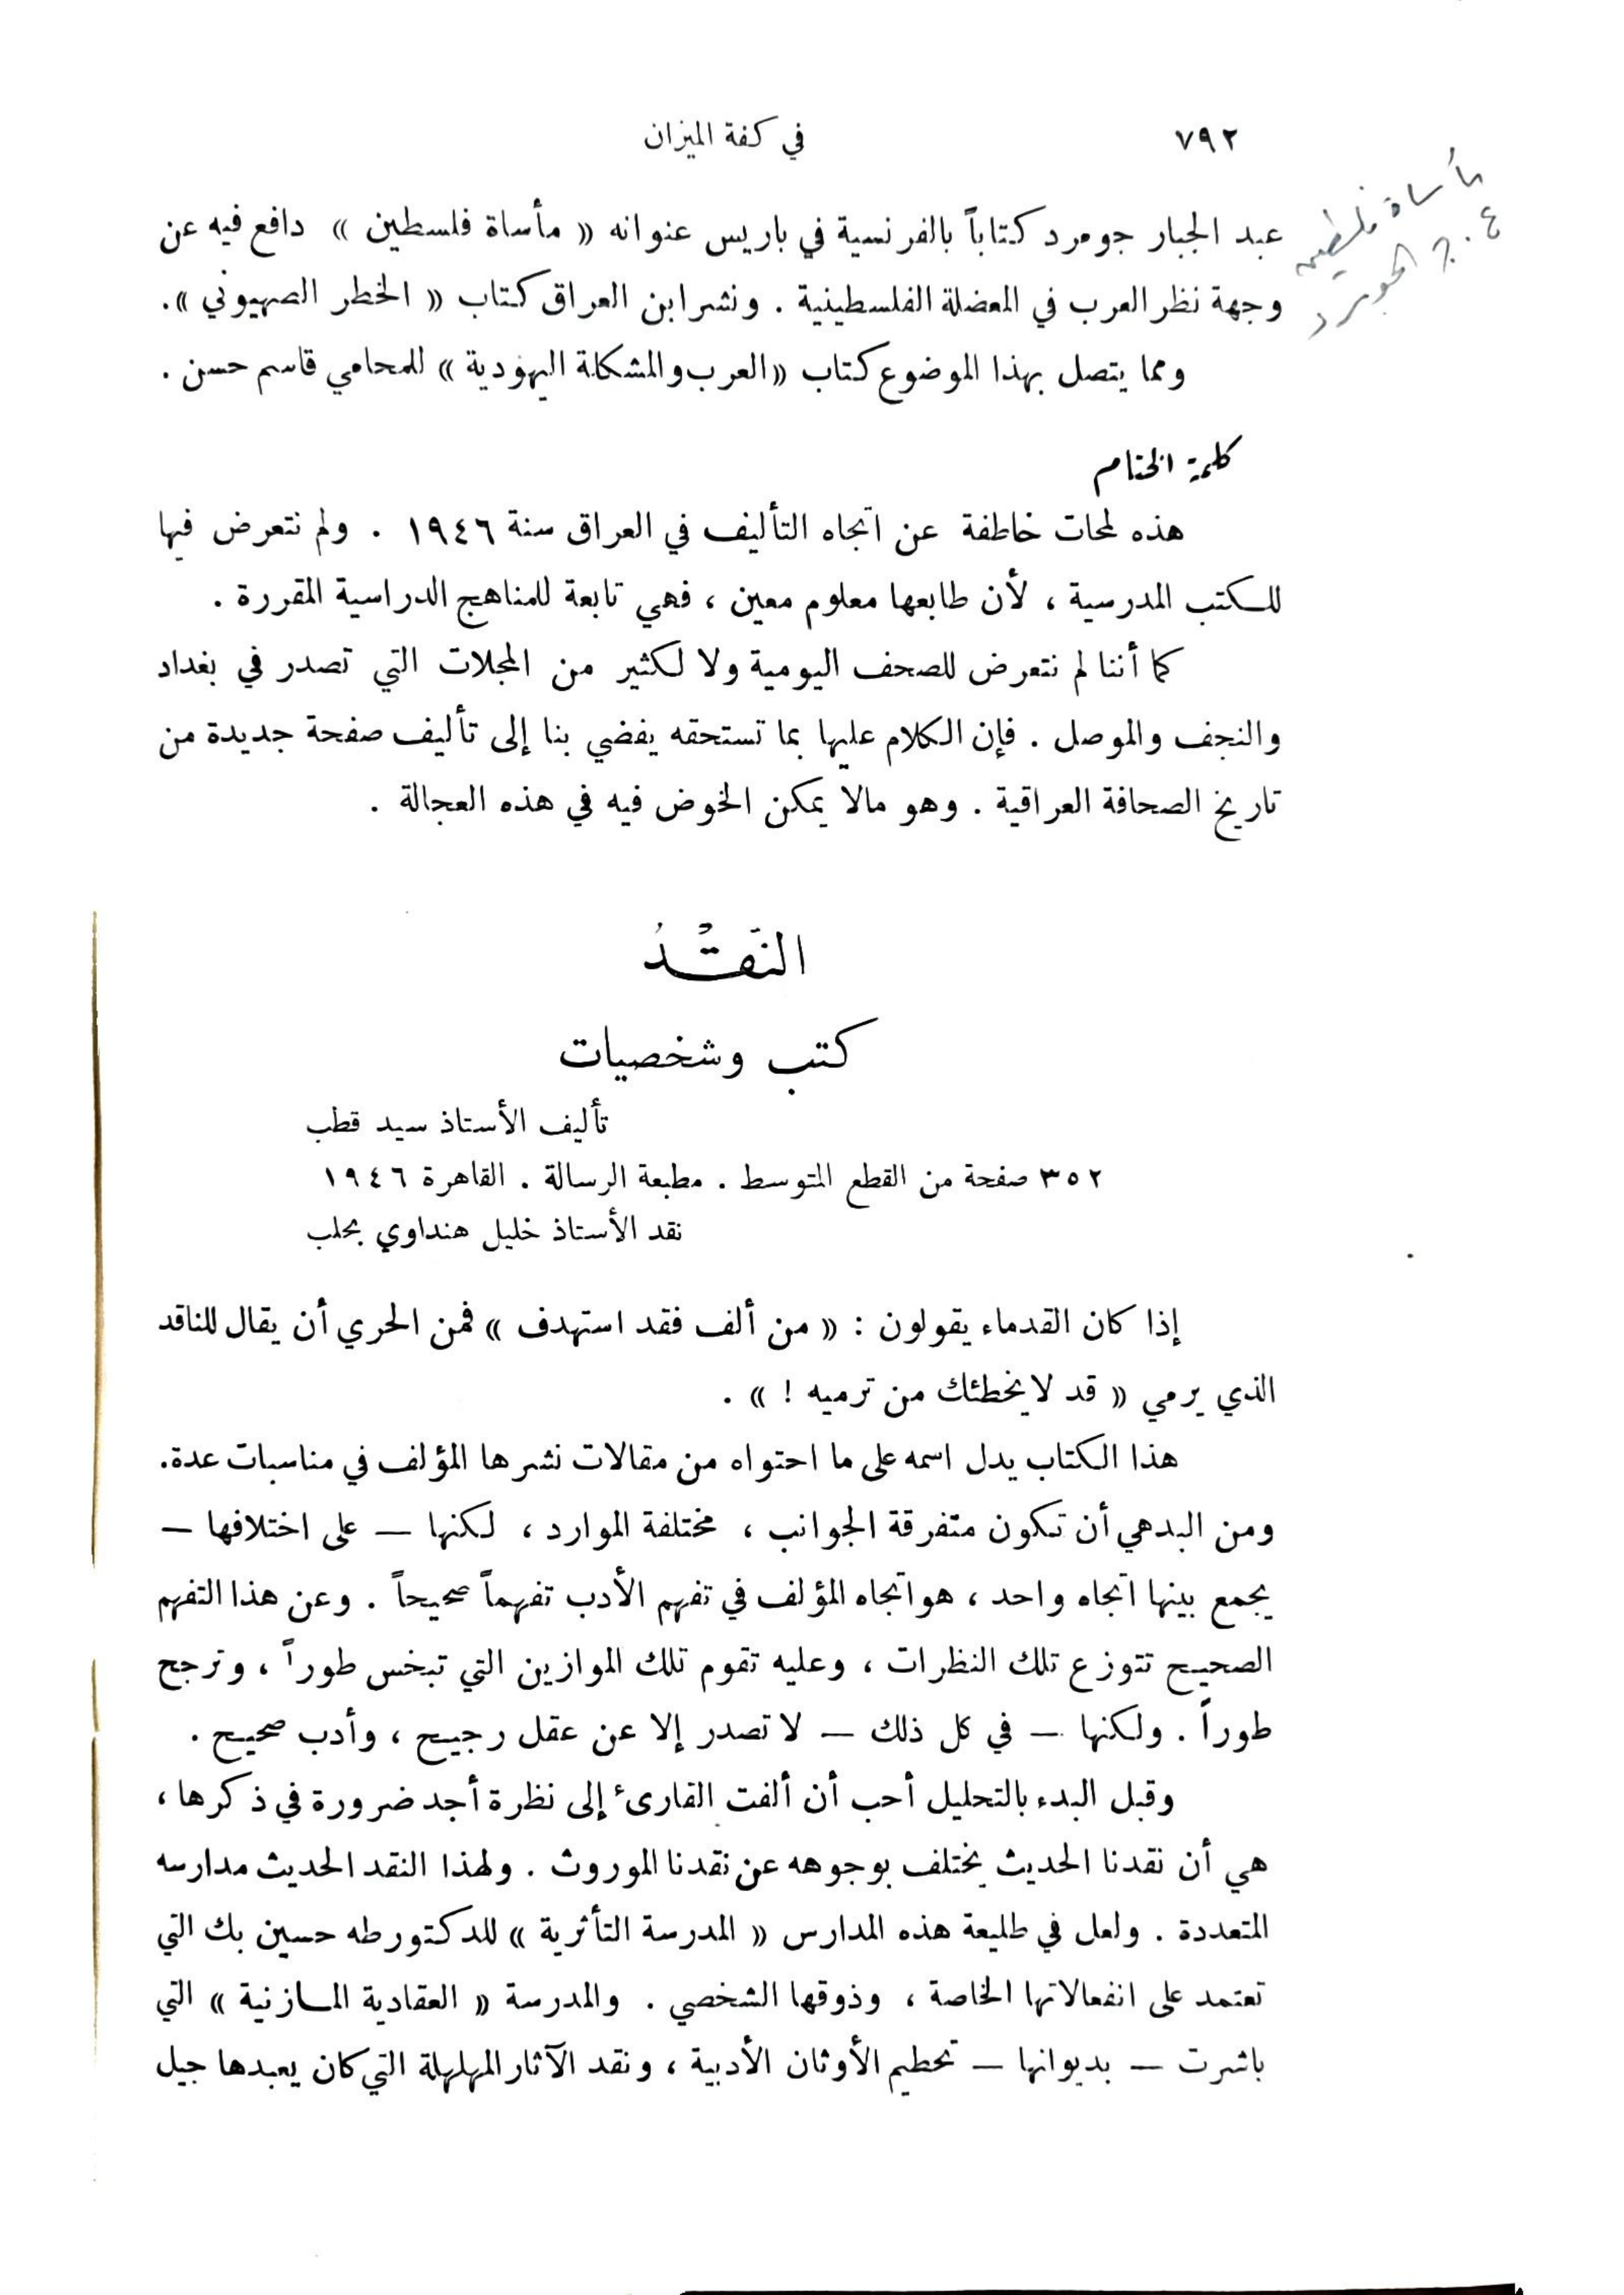 ٧٩٢
في كفة الميزان
مأساة فلسطين
ع . ج الجومرد
عبد الجبار جومرد كتاباً بالفرنسية في باريس عنوانه « مأساة فلسطين » دافع فيه عن
وجهة نظر العرب في المعضلة الفلسطينية . ونشر ابن العراق كتاب « الخطر الصهيوني ».
ومما يتصل بهذا الموضوع كتاب « العرب والمشكلة اليهودية » للمحامي قاسم حسن .
كلمة الختام
هذه لمحات خاطفة عن اتجاه التأليف في العراق سنة ١٩٤٦ . ولم نتعرض فيها
للكتب المدرسية ، لأن طابعها معلوم معين ، فهي تابعة للمناهج الدراسية المقررة .
كما أننا لم نتعرض للصحف اليومية ولا لكثير من المجلات التي تصدر في بغداد
والنجف والموصل . فإن الكلام عليها بما تستحقه يفضي بنا إلى تأليف صفحة جديدة من
تاريخ الصحافة العراقية . وهو مالا يمكن الخوض فيه في هذه العجالة .
النَقْدُ
كتب وشخصيات
تأليف الأستاذ سيد قطب
٣٥٢ صفحة من القطع المتوسط . مطبعة الرسالة . القاهرة ١٩٤٦
نقد الأستاذ خليل هنداوي بحلب
إذا كان القدماء يقولون : « من ألف فقد استهدف » فمن الحري أن يقال للناقد
الذي يرمي « قد لا يخطئك من ترميه ! » .
هذا الكتاب يدل اسمه على ما احتواه من مقالات نشرها المؤلف في مناسبات عدة.
ومن البدهي أن تكون متفرقة الجوانب ، مختلفة الموارد ، لكنها — على اختلافها —
يجمع بينها اتجاه واحد ، هو اتجاه المؤلف في تفهم الأدب تفهماً صحيحاً . وعن هذا التفهم
الصحيح تتوزع تلك النظرات ، وعليه تقوم تلك الموازين التي تبخس طوراً ، وترجح
طوراً . ولكنها — في كل ذلك — لا تصدر إلا عن عقل رجيح ، وأدب صحيح .
وقبل البدء بالتحليل أحب أن ألفت القارئ إلى نظرة أجد ضرورة في ذكرها ،
هي أن نقدنا الحديث يختلف بوجوهه عن نقدنا الموروث . ولهذا النقد الحديث مدارسه
المتعددة . ولعل في طليعة هذه المدارس « المدرسة التأثرية » للدكتور طه حسين بك التي
تعتمد على انفعالاتها الخاصة ، وذوقها الشخصي . والمدرسة « العقادية المازنية » التي
باشرت — بديوانها — تحطيم الأوثان الأدبية ، ونقد الآثار المهلهلة التي كان يعبدها جيل